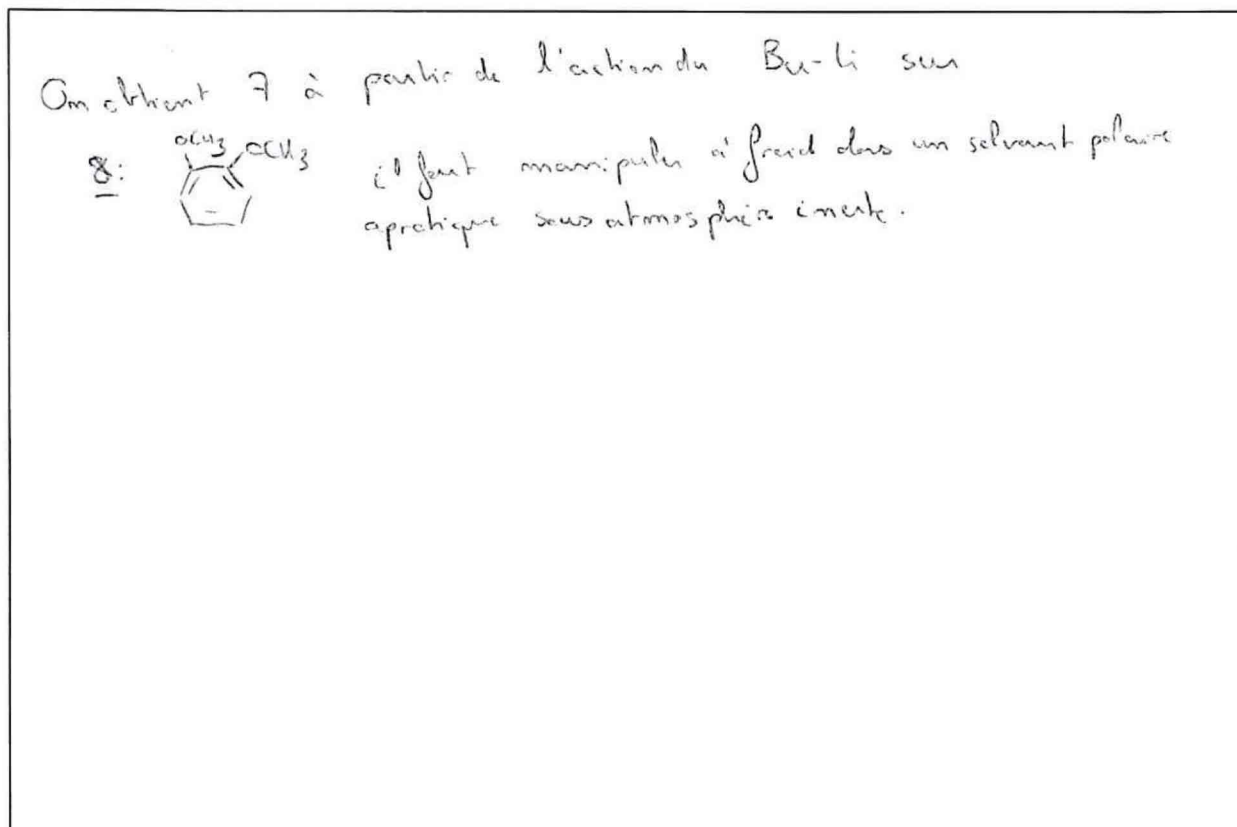 On obtient 7 à partir de l'action du Bu-Li sur
8: OCH3 OCH3 il faut manipuler à froid dans un solvant polaire
aprotique sous atmosphère inerte.